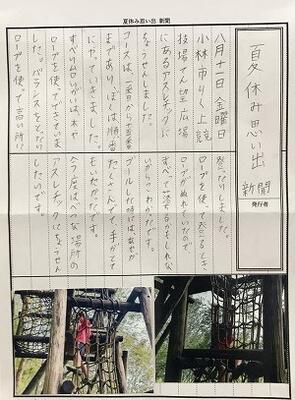 夏休み思い出 新聞
夏休み思い出
新聞
発行者
八月十一日金曜日
小林市りく上競
技場てん望広場
にあるアスレチックに
ちょうせんしました。
コースは、一番から十五番
まであり、ぼくは順番
にやっていきました。
は、木や
ロープを使ってできていま
した。バランスをとったり
ロープを使って高い所に
登ったりしました。
ロープを使って登るとき、
ロープがぬれていたので、
すべって落ちるかもしれな
いからこわかったです。
ゴールした時には、あせが
たくさんでて、手がとて
もいたかったです。
今度はべつな場所の
アスレチックにちょうせん
したいです。